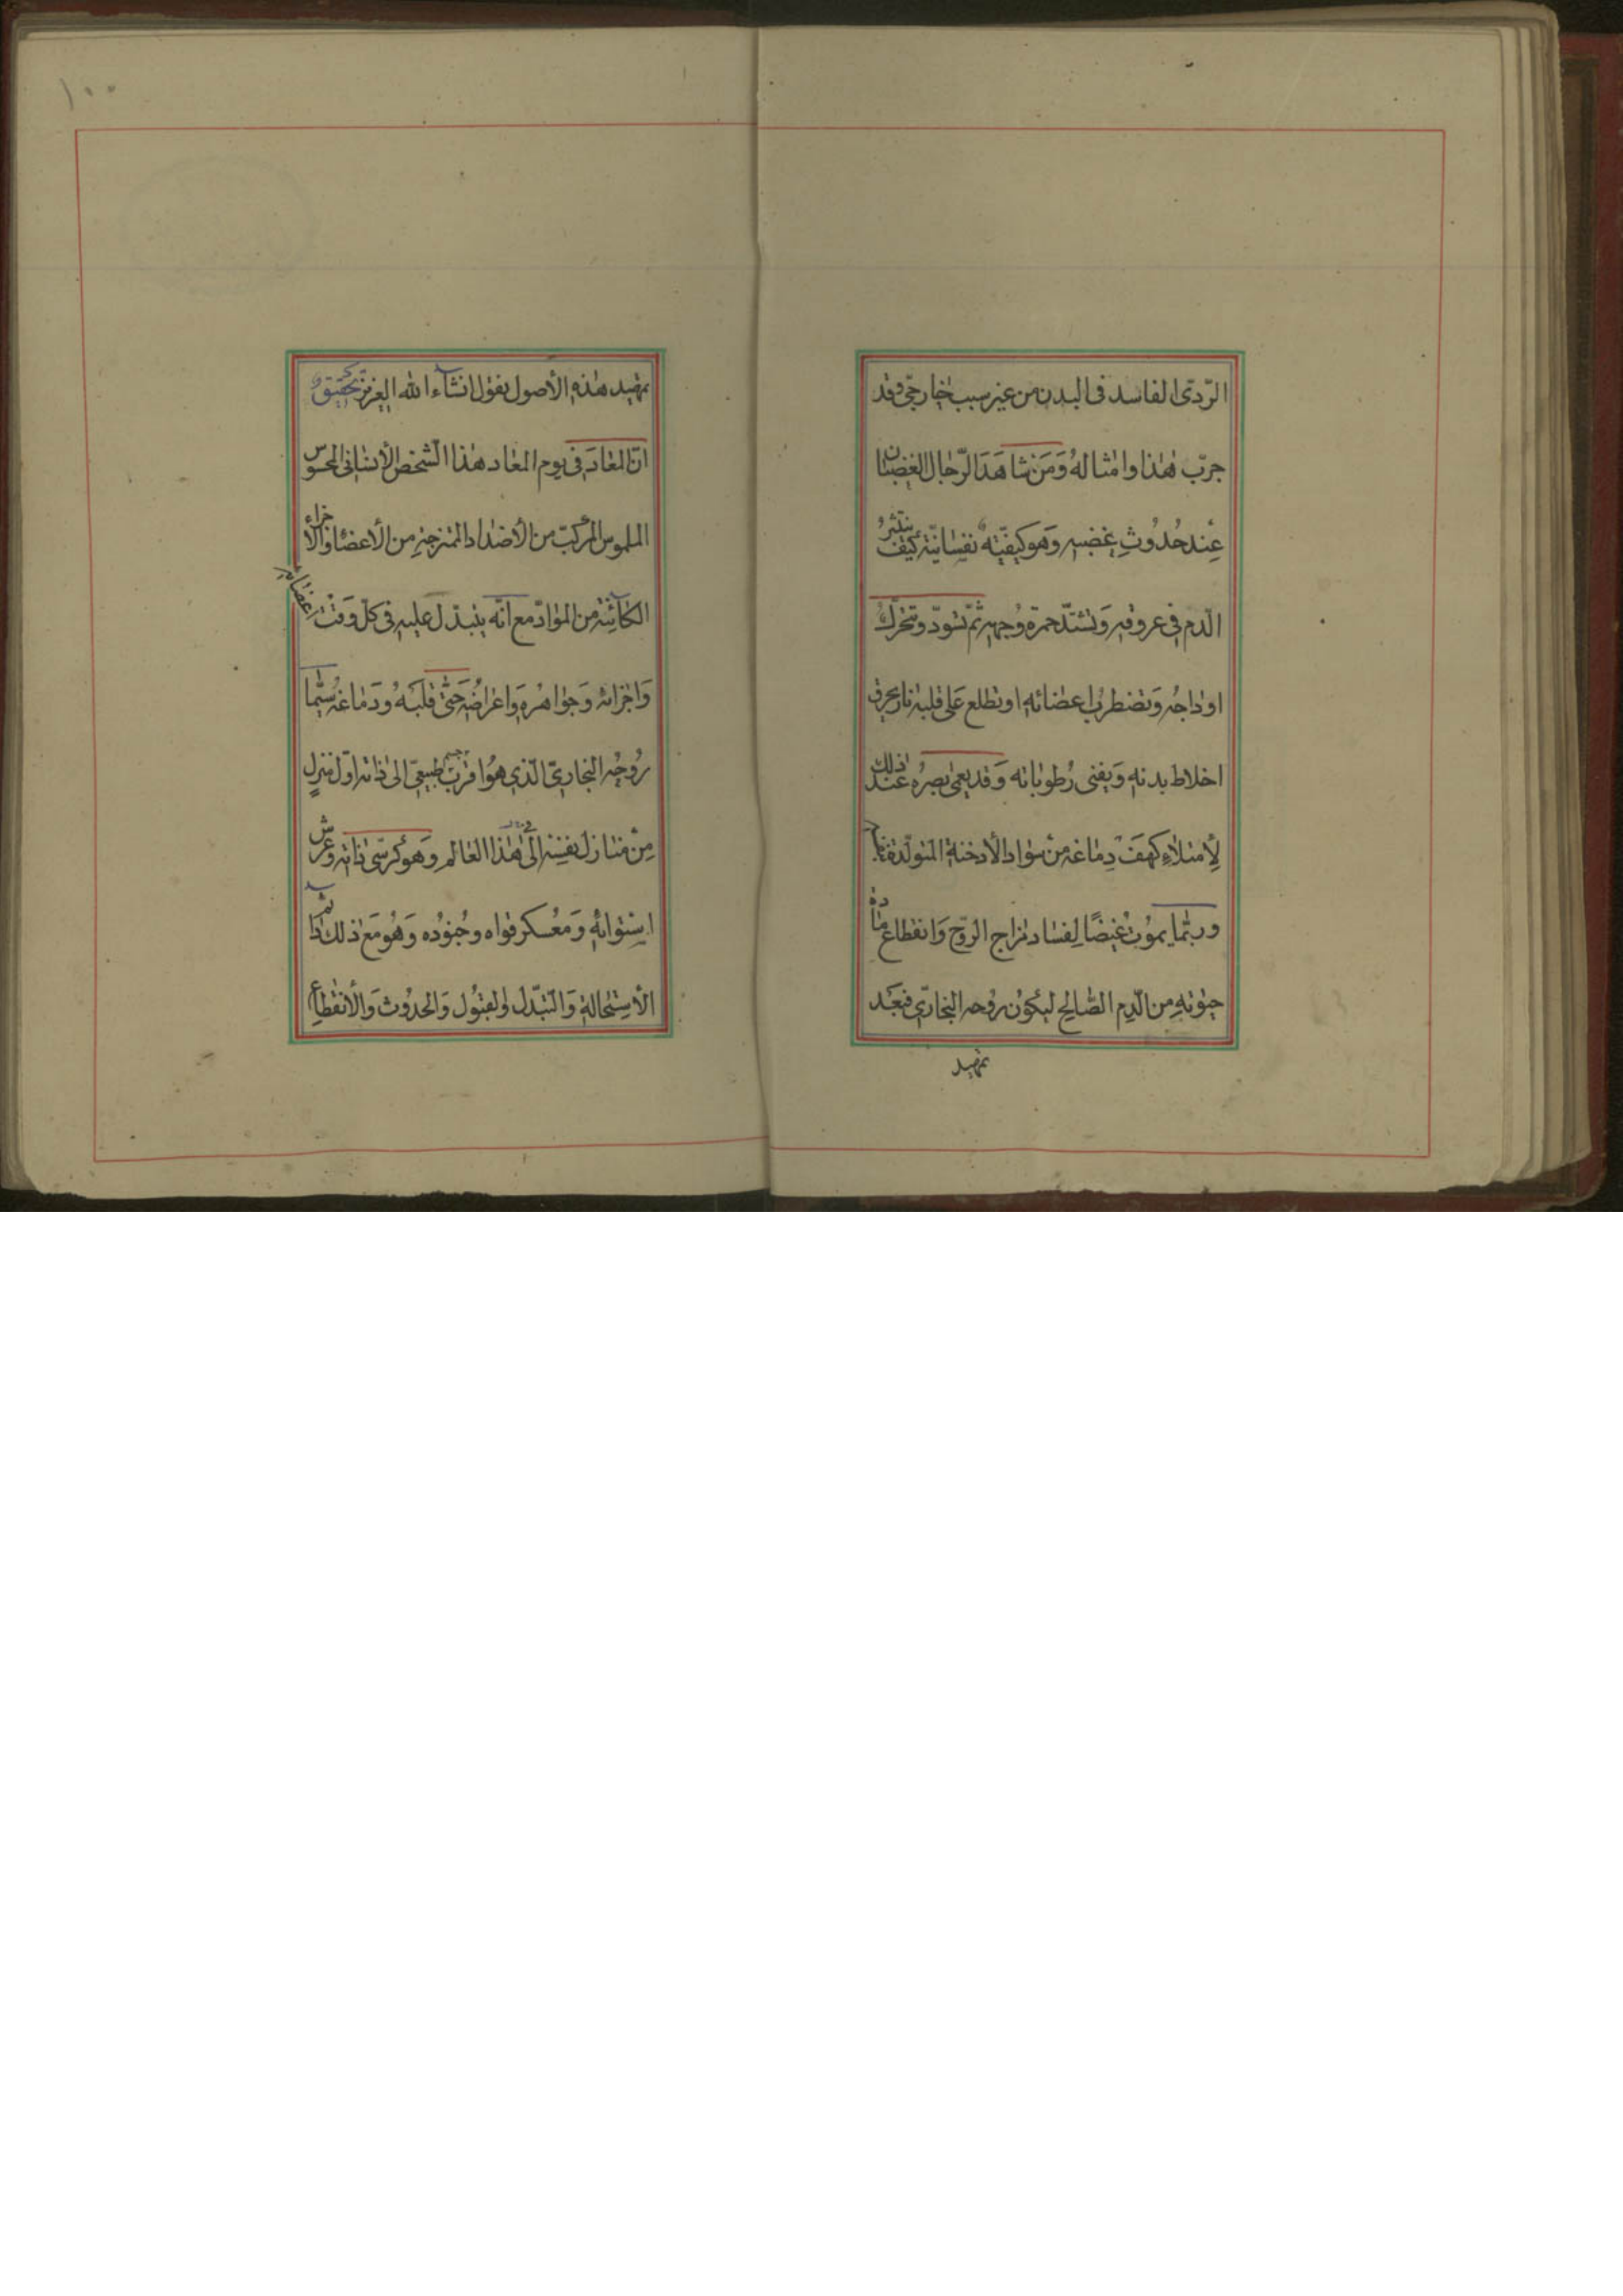 الرّدىّ الفاسد فى البدن من غير سبب خارجىّ وقد
جرّب هٰذا وامثاله وَمَن شاهَدَ الرّجال الغضبان
عِند حُدُوثِ غضبهِ وَهو كيفيّة نفسانيّة كيف ينتشر
الدم فى عروقه وَتشتدّ حمرة وُجهه ثمّ تسودّ وتتحرّك
اوداجه وَتضطرب اعضائه او تطلع عَلى قلبه نار يحرق
اخلاط بدنه وَيفنى رُطوباته وَقد يعمى بصرُه عند ذلك
لِأمتلاءِ كهف دِماغه من سَواد الأدخنة المتولّدة
وربّما يموُت غيضًا لِفساد مزاج الروّح وَانقطاع مادّة
حيٰوته مِن الدّم الصّالح ليكوُن رُوحه البخارىّ فبعَد
تمهيد
١٠٠
تمهيد هٰذه الأصول نقول انشاء الله العزيز تحقيق
انّ المعادَ فى يوم المعاد هٰذا الشّخص الأنسانى المحسوس
الملموس المركّب من الأضداد الممتزجة من الأعضاء والأجزاء
الكائنة من الموادّ مع انّه يتبدّل عليه فى كلّ وَقت اعضائه
وَاجزائه وَجواهرُه وَاعراضه حَتّى قلبَهُ ودَماغه سيّما
رُوحُه البخارىّ الّذى هوُ اقربُ جسم طبيعىّ الى ذاته اوّل منزلٍ
مِنْ منازل نفسِه الى هٰذا العالم وَهو كرسىّ ذاته وعرش
استوائهِ وَمُعسكر قواه وجُنوُده وَهُو مَع ذلك دائم
الأستحالة وَالتبدّل والقبُول وَالحدوُث وَالأنقطاع